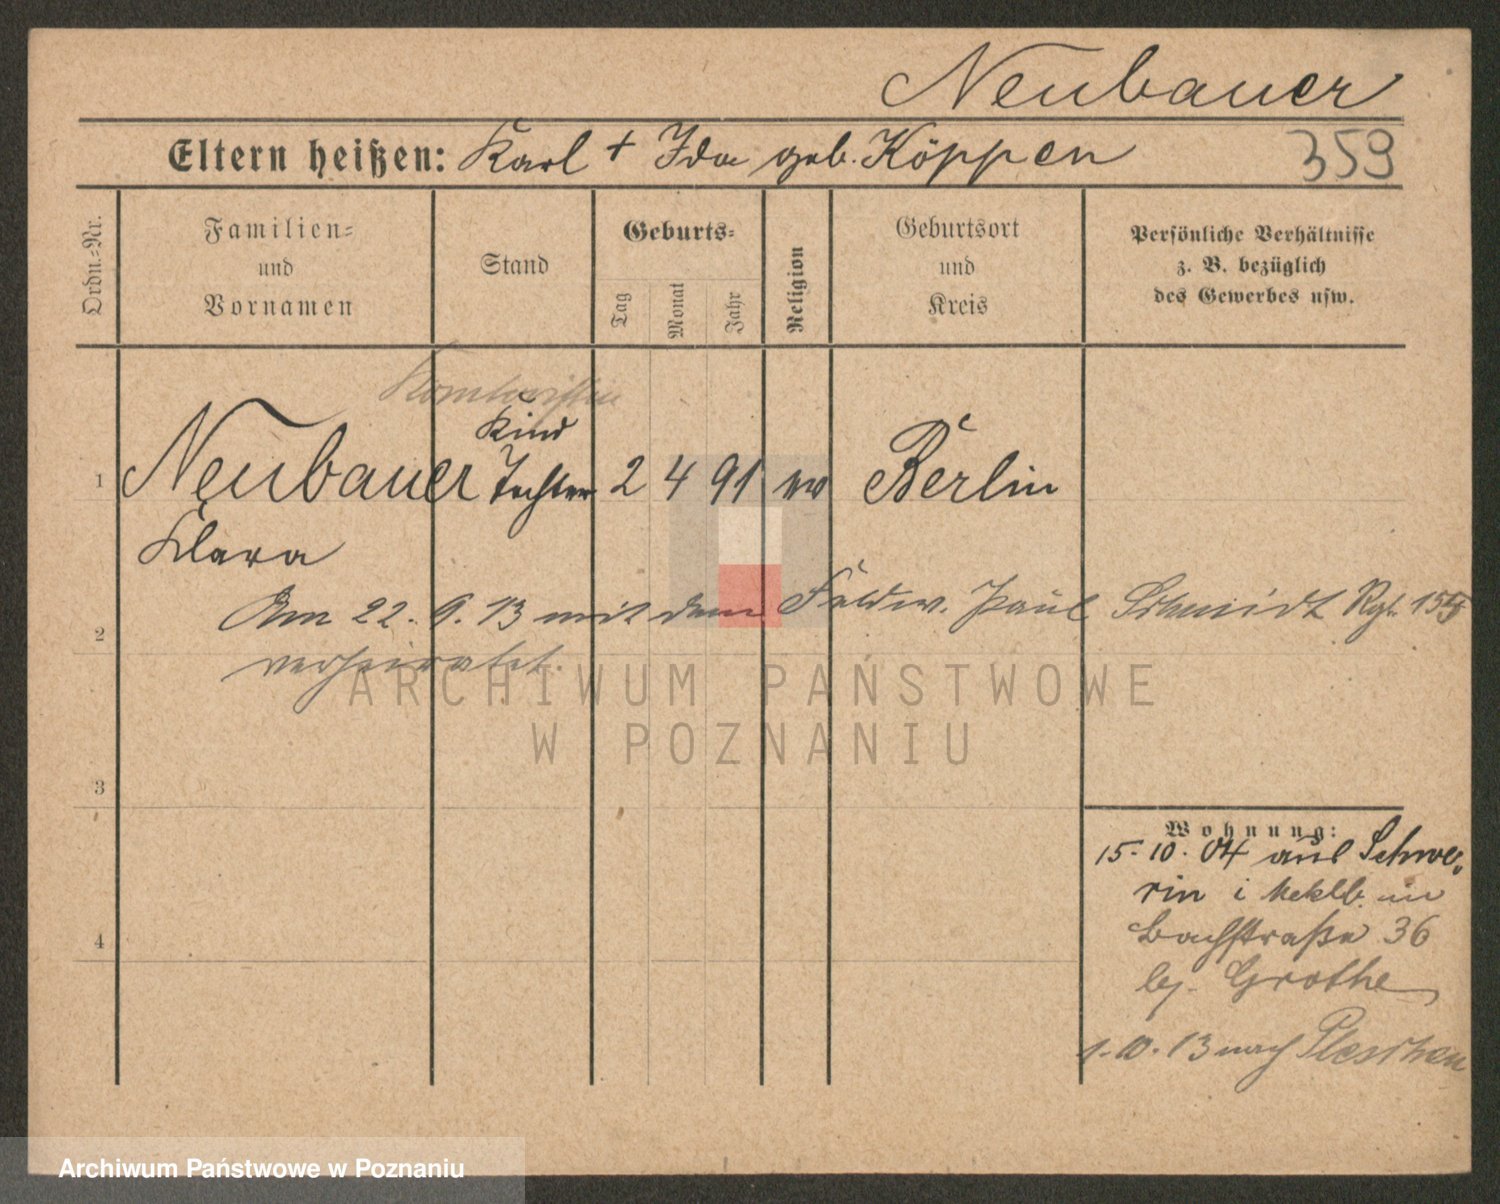 Neubauer
Eltern heißen: Karl + Ida geb. Köppen
359
Ordn.-Nr.
Familien-
und
Vornamen
Stand
Geburts-
Tag
Monat
Jahr
Religion
Geburtsort
und
Kreis
Persönliche Verhältnisse
z. B. bezüglich
des Gewerbes usw.
Kontoristin
Kind
1 Neubauer Tochter 2 4 91 ev Berlin
Klara
Am 22. 9. 13 mit dem Feldw. Paul Schmidt Rgt. 155
2
verheiratet.
ARCHIWUM PAŃSTWOWE
W POZNANIU
3
Wohnung:
15. 10. 04 aus Schwe-
rin i Meklb. in
Bachstraße 36
bei Grothe
4
1. 10. 13 nach Pleschen
Archiwum Państwowe w Poznaniu